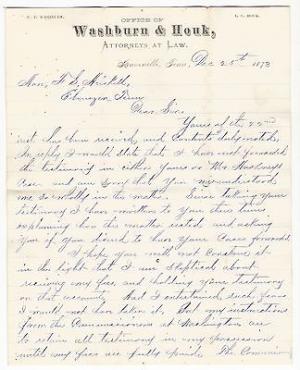 OFFICE OF
W. P. WASHBURN.
L. C. HOUK.
Washburn & Houk,
ATTORNEYS AT LAW.
Knoxville, Tenn, Dec 25th 1873
Hon.
Ebenezer Tenn
Dear Sir:
Yours of the 22nd
inst has been received, and contents duly noted.
In reply I would state that I have not forwarded
the testimony in either yours or Mr
Case and am sorry that you misunderstood
me so wholly in the matter. Since taking your
testimony I have written to you three times
explaining how the matter rested and asking
you if you desired to have your Case forwarded.
I hope you will not construe it
in the light that I am skeptical about
receiving my fees and holding your testimony
on that account. Had I entertained such fears
I would not have taken it, but my instructions
from the Commissioners at Washington are
to retain all testimony in my possession
until my fees are fully paid. The Commission